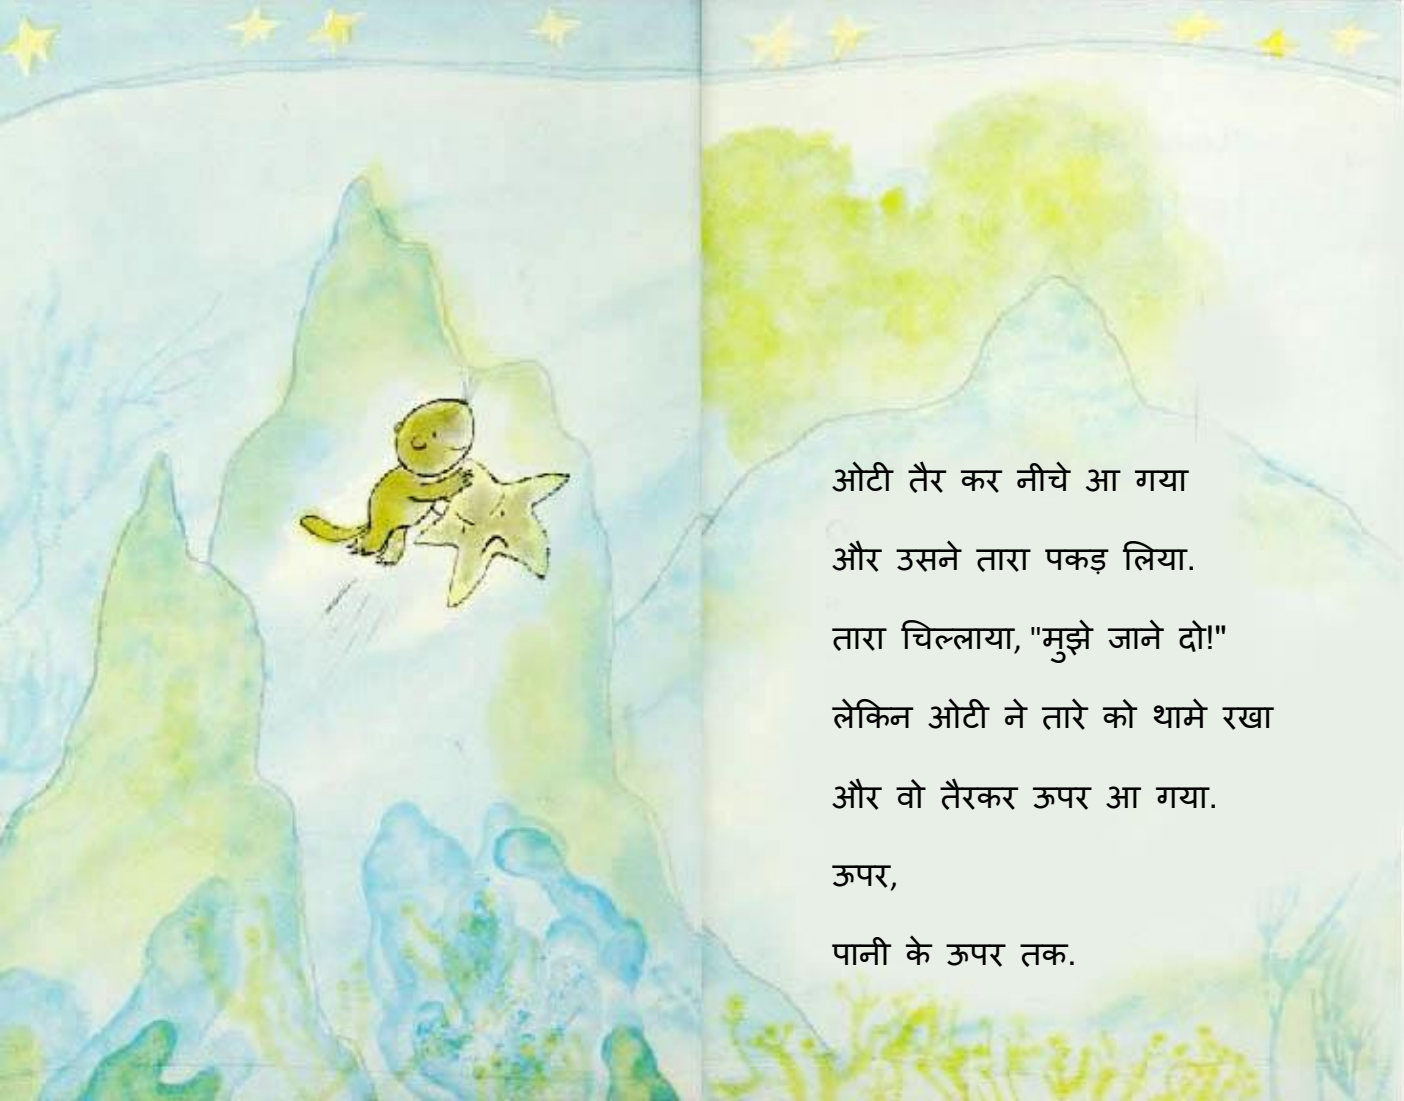 ओटी तैर कर नीचे आ गया
और उसने तारा पकड़ लिया.
तारा चिल्लाया, "मुझे जाने दो!"
लेकिन ओटी ने तारे को थामे रखा
और वो तैरकर ऊपर आ गया.
ऊपर,
पानी के ऊपर तक.